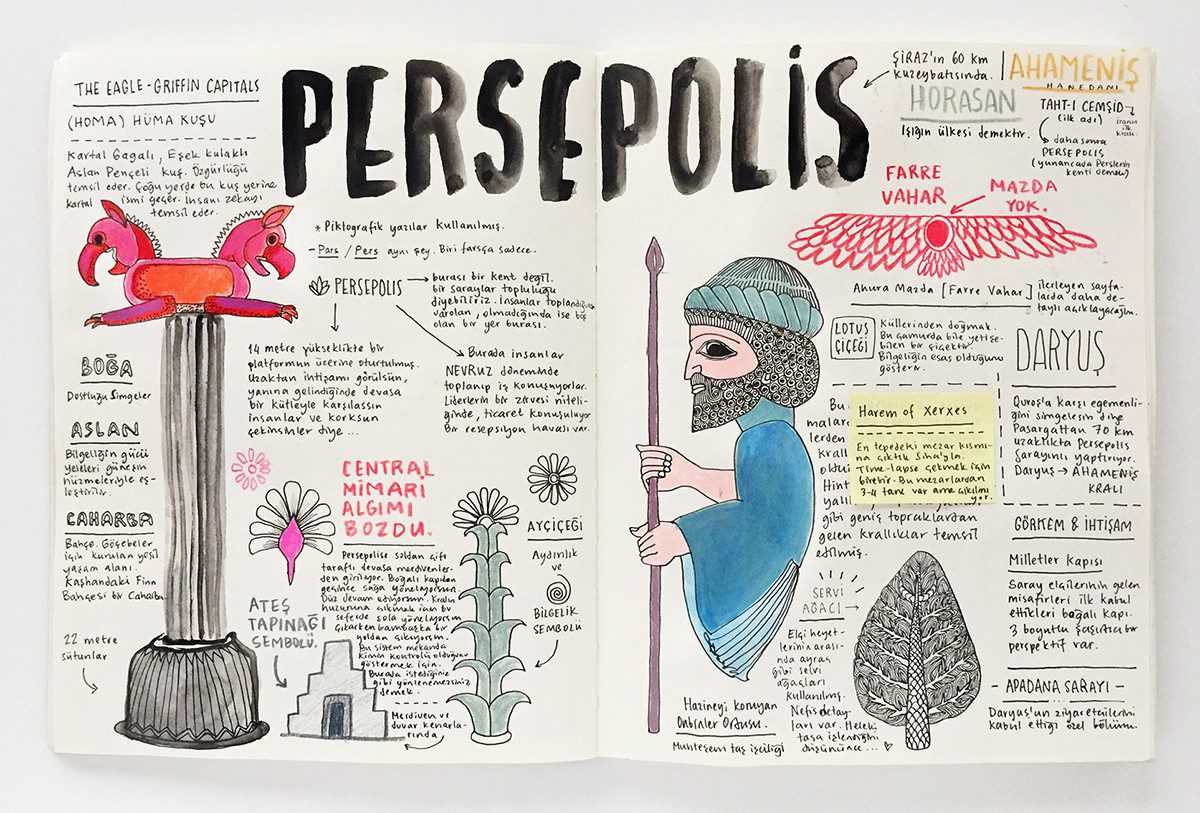 THE EAGLE-GRIFFIN CAPITALS
(HOMA) HÜMA KUŞU
Kartal Gagalı, Eşek kulaklı
Aslan Pençeli kuş. Özgürlüğü
temsil eder. Çoğu yerde bu kuş yerine
kartal ismi geçer. İnsani zekayı
temsil eder.
PERSEPOLİS
* Piktografik yazılar kullanılmış.
- Pars / Pers aynı şey. Biri farsça sadece.
PERSEPOLIS
burası bir kent değil.
bir saraylar topluluğu
diyebiliriz. İnsanlar toplandığında
varolan, olmadığında ise hiç
olan bir yer burası.
14 metre yükseklikte bir
platformun üzerine oturtulmuş.
Uzaktan ihtişamı görülsün,
yanına gelindiğinde devasa
bir kütleyle karşılassın
insanlar ve korksun
çekinsinler diye ...
Burada insanlar
NEVRUZ döneminde
toplanıp iş konuşuyorlar.
Liderlerin bir zirvesi niteli-
ğinde, ticaret konuşuluyor.
Bir resepsiyon havası var.
BOĞA
Dostluğu Simgeler
ASLAN
Bilgeliğin gücü
yeleleri güneşin
hüzmeleriyle eş-
leştirilir.
CAHARBA
Bahçe. Göçebeler
için kurulan yeşil
yaşam alanı.
Kashandaki Finn
Bahçesi bir Caharba
22 metre
sütunlar
CENTRAL
MİMARİ
ALGIMI
BOZDU.
Persepolise soldan çift
taraflı devasa merdivenler-
den giriliyor. Boğalı kapıdan
geçince sağa yöneliyorsun.
Düz devam ediyorsun. Kralın
huzuruna çıkmak için bu
seferde sola yöneliyorsun
Çıkarken bambaşka bir
yoldan çıkıyorsun.
Bu sistem mekanda
kimin kontrolü olduğunu
göstermek için.
Burada istediğiniz
gibi yönlenemezsiniz
demek.
ATEŞ
TAPINAĞI
SEMBOLÜ.
Merdiven ve
duvar kenarla-
rında
AYÇİÇEĞİ
Aydınlık
ve
BİLGELİK
SEMBOLÜ
ŞİRAZ'ın 60 km
kuzeybatısında.
AHAMENİŞ
HANEDANI
HORASAN
Işığın ülkesi demektir.
TAHT-I CEMŞİD
(ilk adı)
iranın
ilk
kralı.
daha sonra
PERSEPOLIS
(yunancada Perslerin
kenti demek)
FARRE
VAHAR
MAZDA
YOK.
Ahura Mazda [Farre Vahar] ilerleyen sayfa-
larda daha de-
taylı açıklayacağım.
LOTUS
ÇİÇEĞİ
Küllerinden doğmak.
Bu çamurda bile yetişe-
bilen bir çiçektir.
Bilgeliğin esas olduğunu
gösterir.
DARYUŞ
Quroş'a karşı egemenli-
ğini simgelesin diye
Pasargattan 70 km
uzaklıkta Persepolis
Sarayını yaptırıyor.
Daryuş → AHAMENİŞ
KRALI
Bu
malar
lerden
krallı
oldu
Hint
yalı
gibi geniş topraklardan
gelen krallıklar temsil
edilmiş.
Harem of Xerxes
En tepedeki mezar kısmı-
na çıktık Sina'yla.
Time-lapse çekmek için
birebir. Bu mezarlardan
3-4 tane var ama çıkılmı
yor.
GÖRKEM & İHTİŞAM
Milletler Kapısı
Saray elçilerinin gelen
misafirleri ilk kabul
ettikleri boğalı kapı.
3 boyutlu şaşırtıcı bir
perspektif var.
- APADANA SARAYI -
Daryuş'un ziyaretçilerini
kabul ettiği özel bölüm.
SERVİ
AĞACI
Elçi heyet-
lerinin arası-
nda ayraç
gibi selvi
ağaçları
kullanılmış.
Nefis detay-
ları var. Hele ki
taşa işlendiğini
düşününce...
Hazineyi koruyan
Onbinler Ordusu.
Muhteşem taş işçiliği